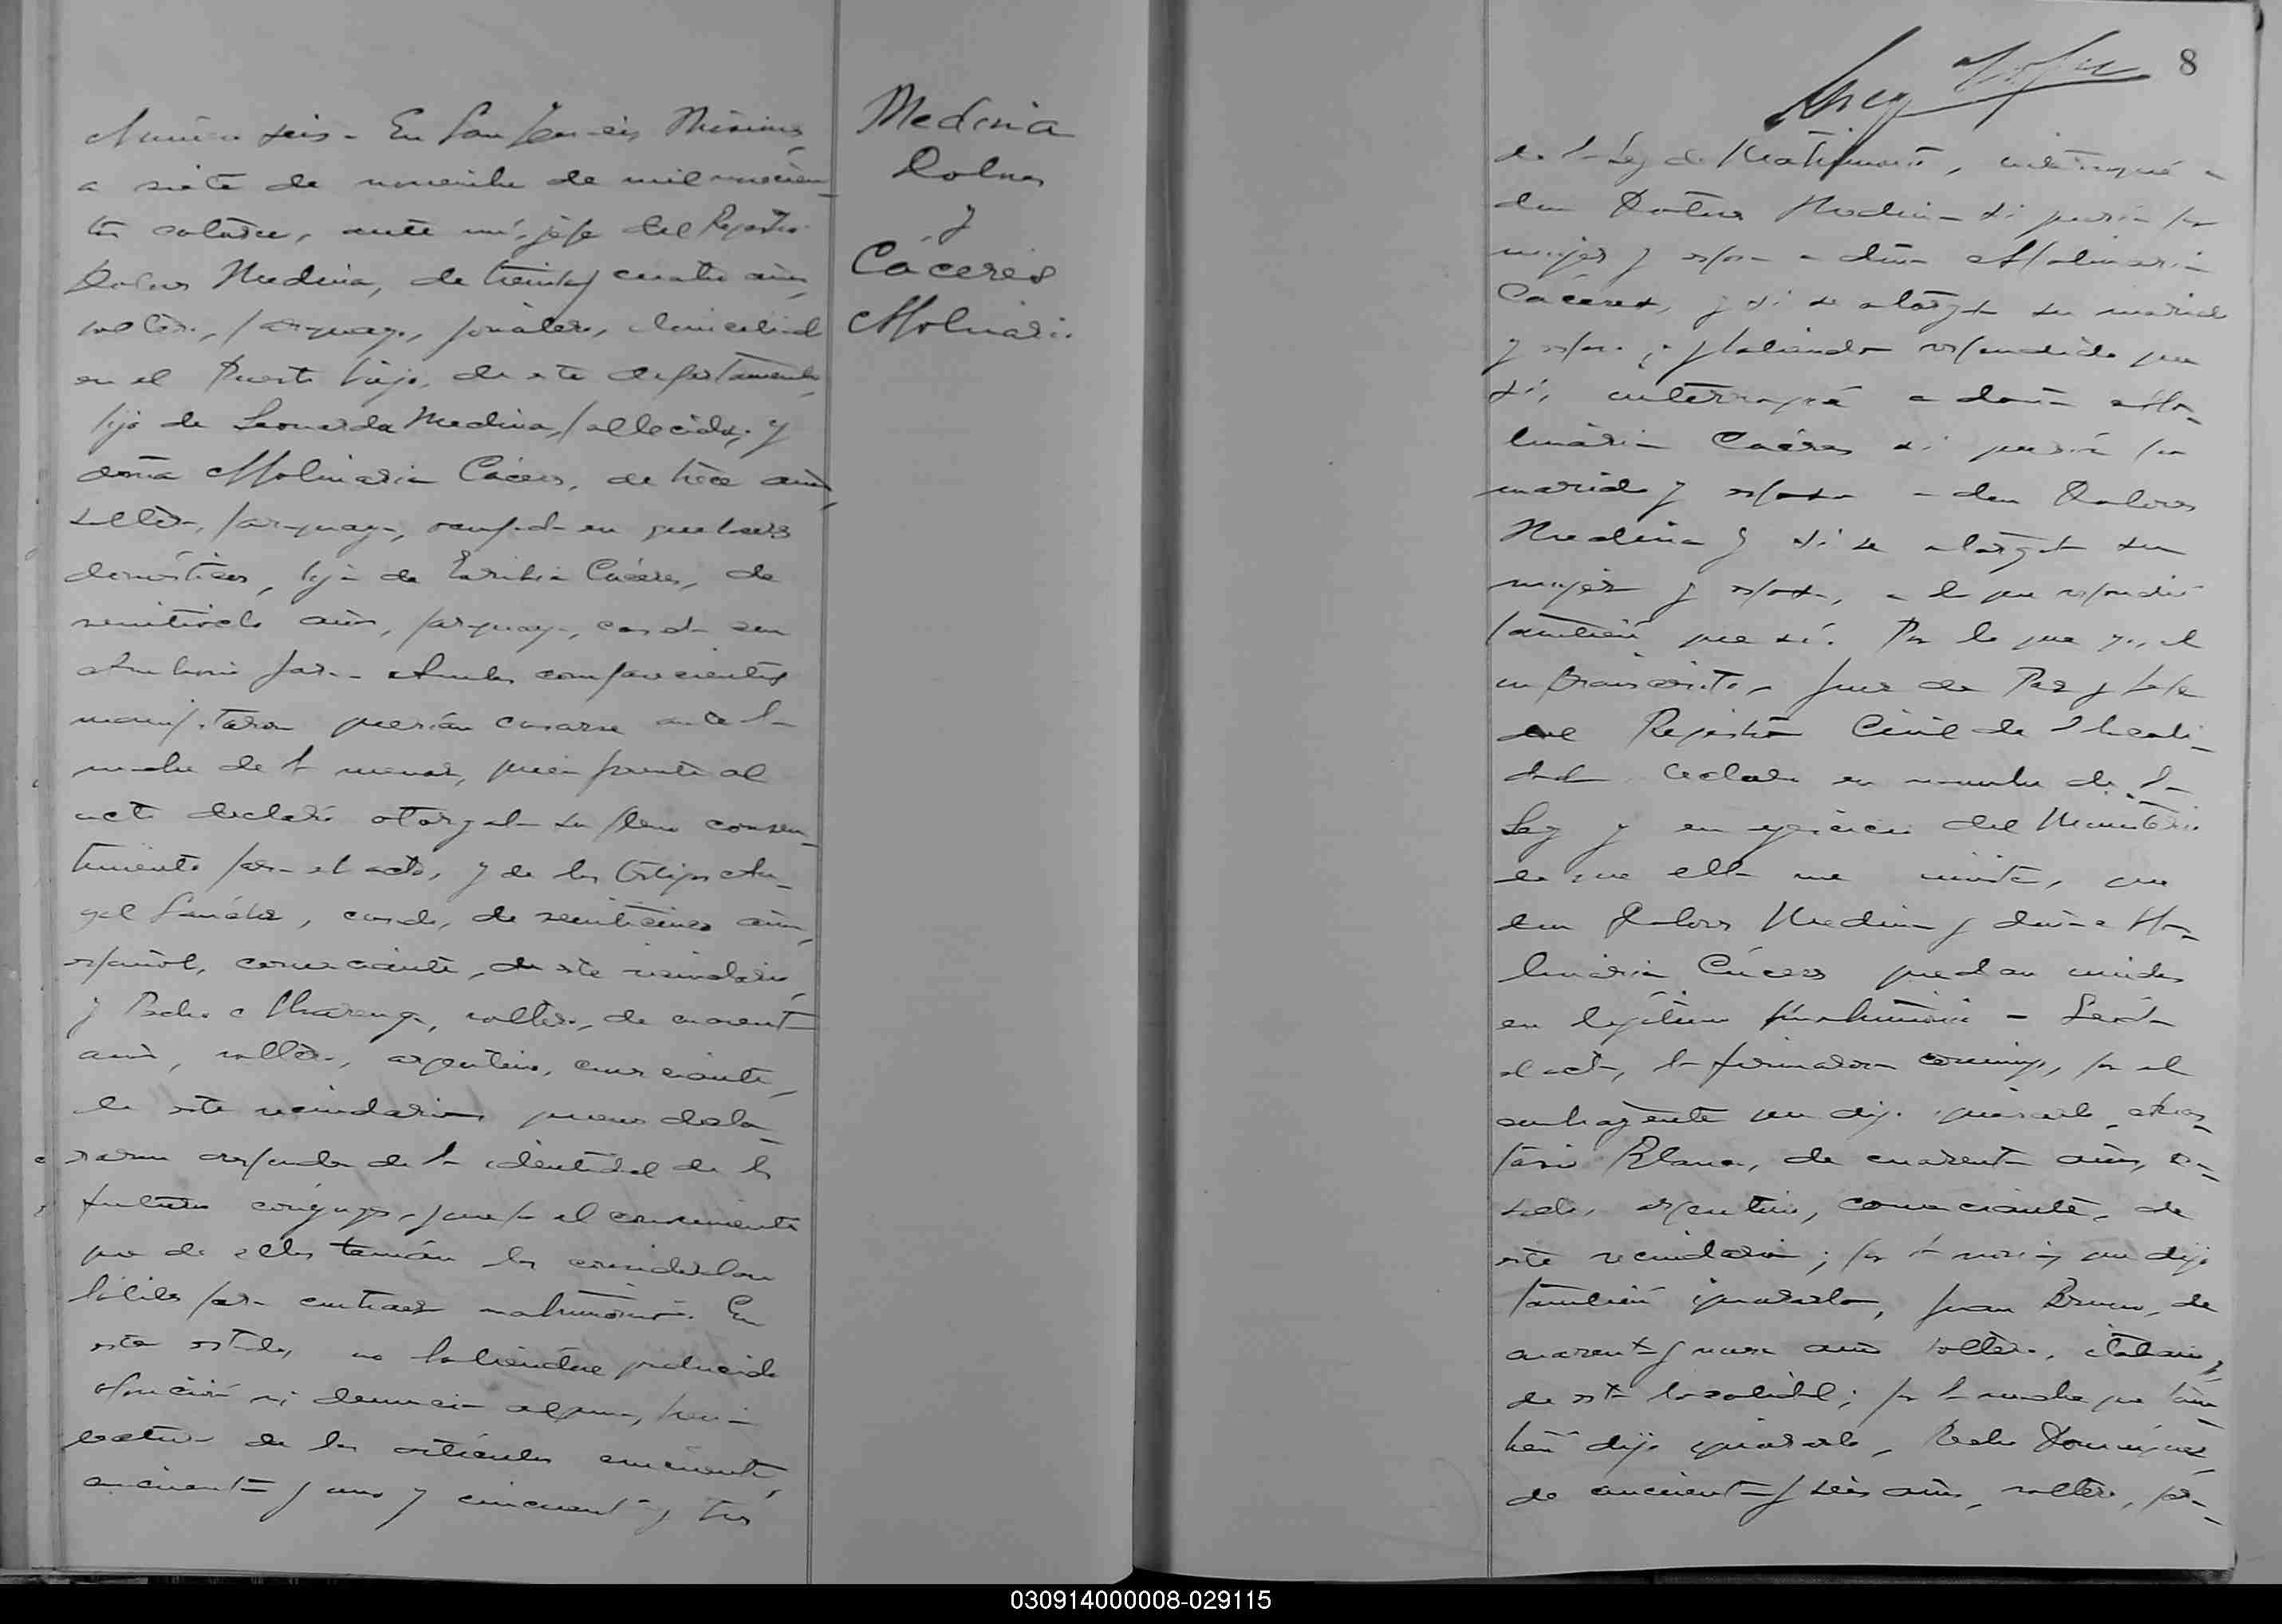 Número seis - En San Francisco, Misiones,
a siete de noviembre de mil novecien-
tos catorce, ante mí, jefe del Registro
Dolores Medina, de treinta y cuatro años,
soltero, paraguayo, jornalero, domiciliado
en el Puerto Viejo, de este departamento,
hijo de Leonarda Medina, fallecida; y
doña Apolinaria Cáceres, de trece años,
soltera, paraguaya, ocupada en quehaceres
domésticos, hija de Cáceres, de
veintiocho años, paraguaya, casada con
Ambos comparecientes
manifestaron querían casarse ante la
madre de la menor, quien presente al
acto declaró otorgaba su pleno consen-
timiento para el acto, y de los testigos An-
gel Sánchez, casado, de veinticinco años,
español, comerciante, de este vecindario,
y Pedro soltero, de cuarenta
años, soltero, argentino, comerciante,
de este vecindario, quienes decla-
raron respondían de la identidad de los
futuros cónyuges, y que por el conocimiento
que de ellos tenían los consideraban
hábiles para contraer matrimonio. En
este estado, no habiéndose producido
oposición ni denuncia alguna, hice
lectura de los artículos cincuenta,
cincuenta y uno y cincuenta y tres
Medina
Dolores
y
Cáceres
Apolinaria
8
de la Ley de Matrimonio, interrogué a
don Dolores Medina si quería por
mujer y esposa a doña Apolinaria
Cáceres, y si se otorgaba su marido
y esposo; y habiendo respondido que
sí, interrogué a doña Apo-
linaria Cáceres si quería por
marido y esposo a don Dolores
Medina y si se otorgaba su
mujer y esposa, a lo que respondió
también que sí. Por lo que yo, el
infrascrito, Juez de Paz y Jefe
del Registro Civil de la locali-
dad declaro en nombre de la
Ley y en ejercicio del Ministerio
de que ella me inviste, que
don Dolores Medina y doña Apo-
linaria Cáceres quedan unidos
en legítimo matrimonio - Leída
el acta, la firmaron conmigo, por el
contrayente que dijo ignorarlo,
Blanco, de cuarenta años, ca-
sado, argentino, comerciante, de
este vecindario; por la novia, que dijo
también ignorarlo, Juan Bruno, de
cuarenta y nueve años soltero, italiano,
de esta localidad; por la madre que tam-
bién dijo ignorarlo, Pedro Domínguez,
de cincuenta y seis años, soltero, pa-
030914000008-029115